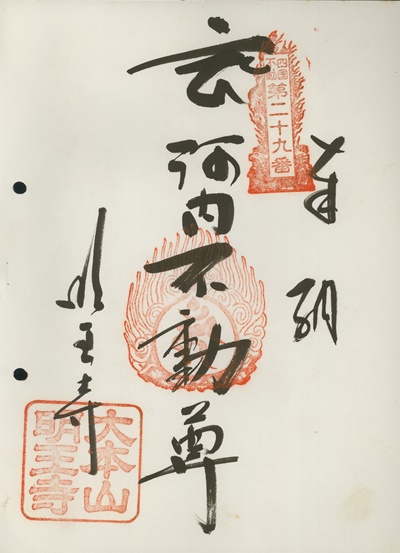 奉納
四国
不動
第二十九番
河内不動尊
明王寺
大本山
明王寺